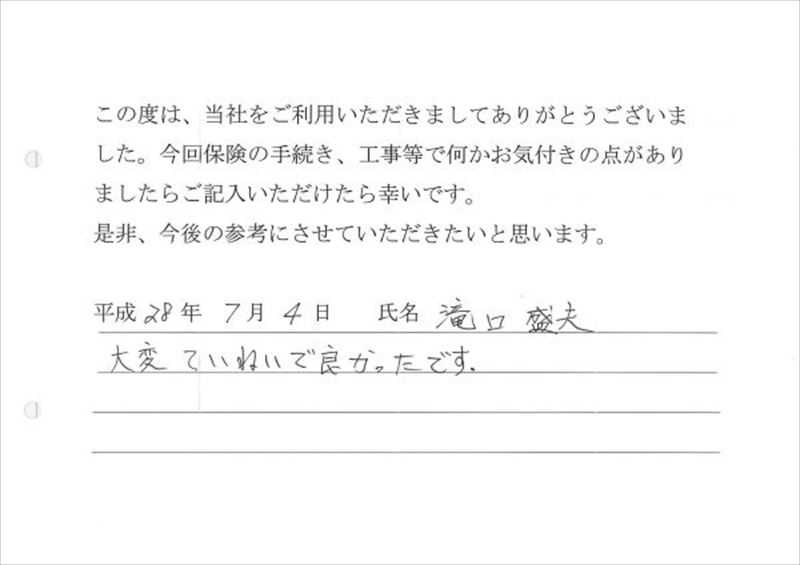 この度は、当社をご利用いただきましてありがとうございま
した。今回保険の手続き、工事等で何かお気付きの点があり
ましたらご記入いただけたら幸いです。
是非、今後の参考にさせていただきたいと思います。
平成28年 7月 4日 氏名 滝口 盛夫
大変ていねいで良かったです.